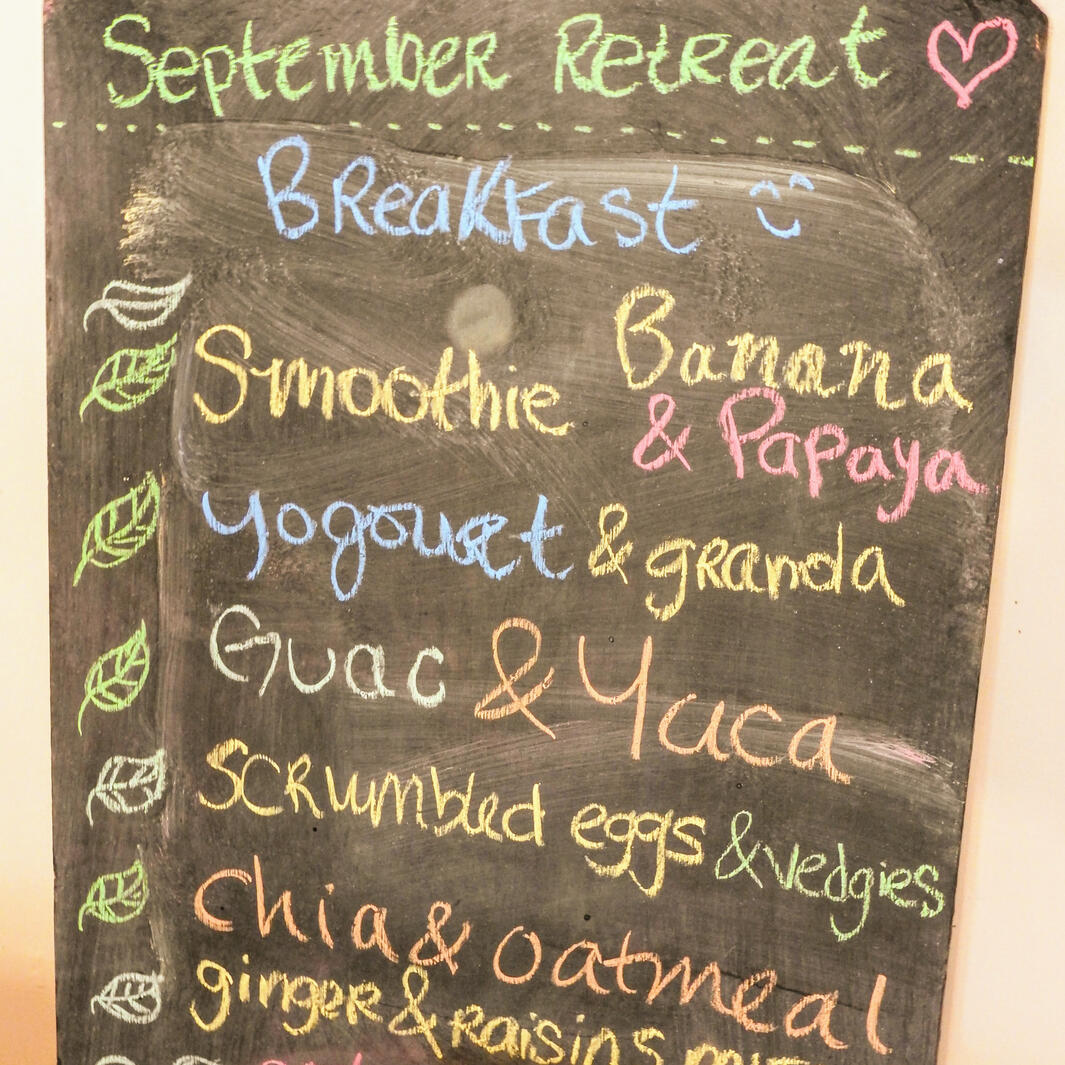 September Retreat
Breakfast
Smoothie Banana
& Papaya
Yogouret & granda
Guac & Yuca
Scrumbled eggs & vedgies
Chia & oatmeal
ginger & raisins